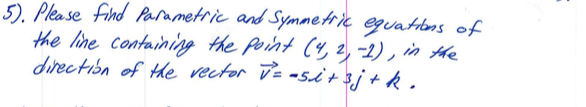 5). Please find Parametric and Symmetric equations of
the line containing the point (4, 2, -1), in the
direction of the vector v⃗ = -5i + 3j + k.